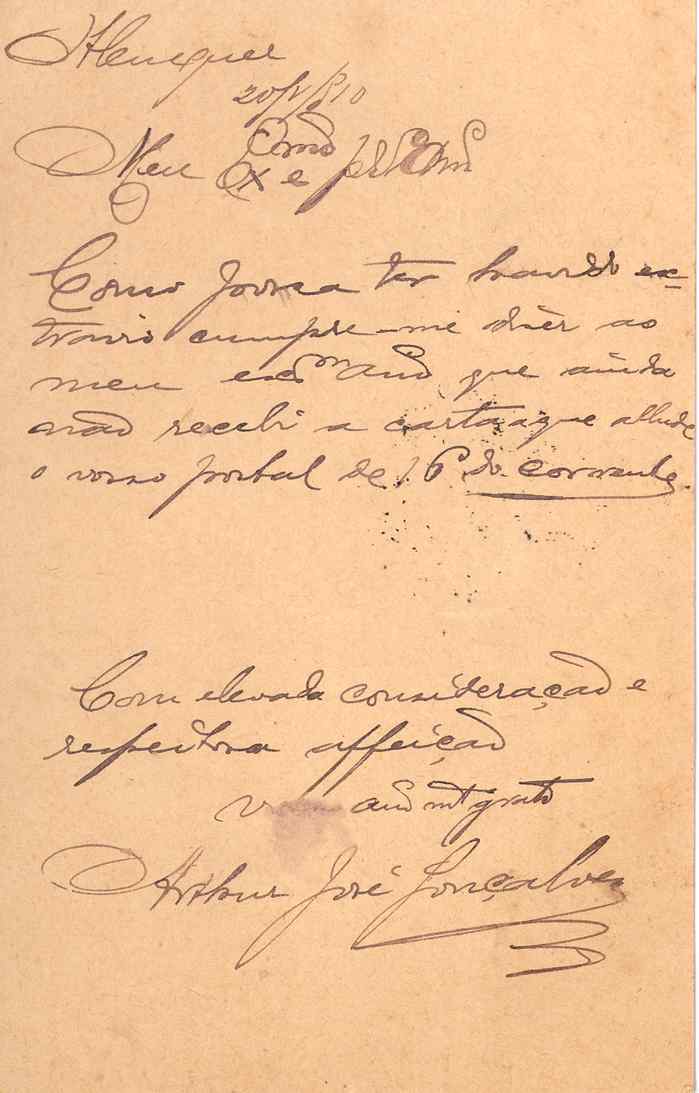 Alemquer
20/5/910
Meu Exmo e
Como possa ter havido ex-
travio cumpre-me dizer ao
meu exmo amo que ainda
não recebi a carta a que allude
o vosso postal de 16 do corrente.
Com elevada consideração e
respeitosa affeição
V amo mto grato
Arthur José Gonçalves